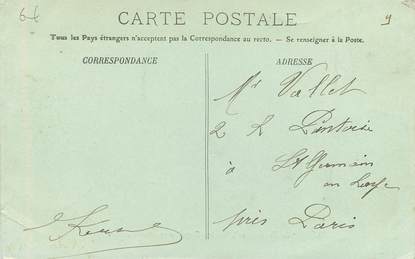 6f
9
CARTE POSTALE
Tous les Pays étrangers n'acceptent pas la Correspondance au recto. - Se renseigner à la Poste.
CORRESPONDANCE
ADRESSE
Mr Vallet
2 R Pontoise
à St Germain
en Laye
près Paris